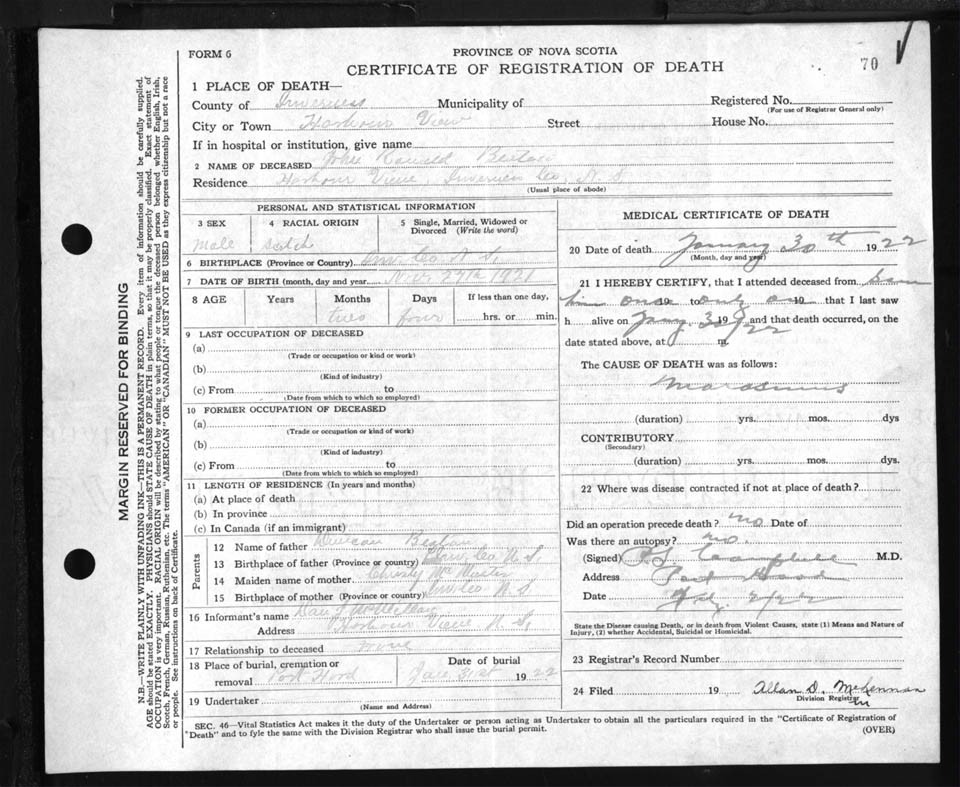 FORM 6
PROVINCE OF NOVA SCOTIA
CERTIFICATE OF REGISTRATION OF DEATH
70
MARGIN RESERVED FOR BINDING
N.B.—WRITE PLAINLY WITH UNFADING INK—THIS IS A PERMANENT RECORD. Every item of information should be carefully supplied.
AGE should be stated EXACTLY. PHYSICIANS should STATE CAUSE OF DEATH in plain terms, so that it may be properly classified. Exact statement of
OCCUPATION is very important. RACIAL ORIGIN will be described by stating to what people or tongue the deceased person belonged whether English, Irish,
Scotch, French, German, Russian, Ruthenian, etc. The terms "AMERICAN" OR "CANADIAN" MUST NOT BE USED as they express citizenship but not a race
or people. See instructions on back of Certificate.
1 PLACE OF DEATH—
County of Inverness Municipality of Registered No.
(For use of Registrar General only)
City or Town Harbour View Street House No.
If in hospital or institution, give name
2 NAME OF DECEASED John Ronald Beaton
Residence Harbour View Inverness Co, N. S
(Usual place of abode)
PERSONAL AND STATISTICAL INFORMATION
3 SEX 4 RACIAL ORIGIN 5 Single, Married, Widowed or
Divorced (Write the word)
male scotch
6 BIRTHPLACE (Province or Country) Inv. Co N S,
7 DATE OF BIRTH (month, day and year) Nov. 27th 1921
8 AGE Years Months Days If less than one day,
two four hrs. or min.
9 LAST OCCUPATION OF DECEASED
(a)
(Trade or occupation or kind or work)
(b)
(Kind of industry)
(c) From to
(Date from which to which so employed)
10 FORMER OCCUPATION OF DECEASED
(a)
(Trade or occupation or kind of work)
(b)
(Kind of industry)
(c) From to
(Date from which to which so employed)
11 LENGTH OF RESIDENCE (In years and months)
(a) At place of death
(b) In province
(c) In Canada (if an immigrant)
Parents
12 Name of father Duncan Beaton
13 Birthplace of father (Province or country) Inv. Co N S
14 Maiden name of mother Christy Mc
15 Birthplace of mother (Province or country) Inv. Co N. S
16 Informant's name Dan
Address Harbour View N. S,
17 Relationship to deceased none
18 Place of burial, cremation or Date of burial
removal Port Hood Jan 31st 1922
19 Undertaker
(Name and Address)
MEDICAL CERTIFICATE OF DEATH
20 Date of death January 30th 1922
(Month, day and year)
21 I HEREBY CERTIFY, that I attended deceased from
him once 19 to only on 19 that I last saw
h alive on Jany, 19 and that death occurred, on the
date stated above, at m.
The CAUSE OF DEATH was as follows:
Marasmus
(duration) yrs. mos. dys
CONTRIBUTORY
(Secondary)
(duration) yrs. mos. dys.
22 Where was disease contracted if not at place of death?
Did an operation precede death? no Date of
Was there an autopsy? no.
(Signed) Campbell M.D.
Address Port Hood
Date
State the Disease causing Death, or in death from Violent Causes, state (1) Means and Nature of
Injury, (2) whether Accidental, Suicidal or Homicidal.
23 Registrar's Record Number
24 Filed 19 Allan D. McLennan
Division Registrar
SEC. 46—Vital Statistics Act makes it the duty of the Undertaker or person acting as Undertaker to obtain all the particulars required in the "Certificate of Registration of
Death" and to fyle the same with the Division Registrar who shall issue the burial permit. (OVER)